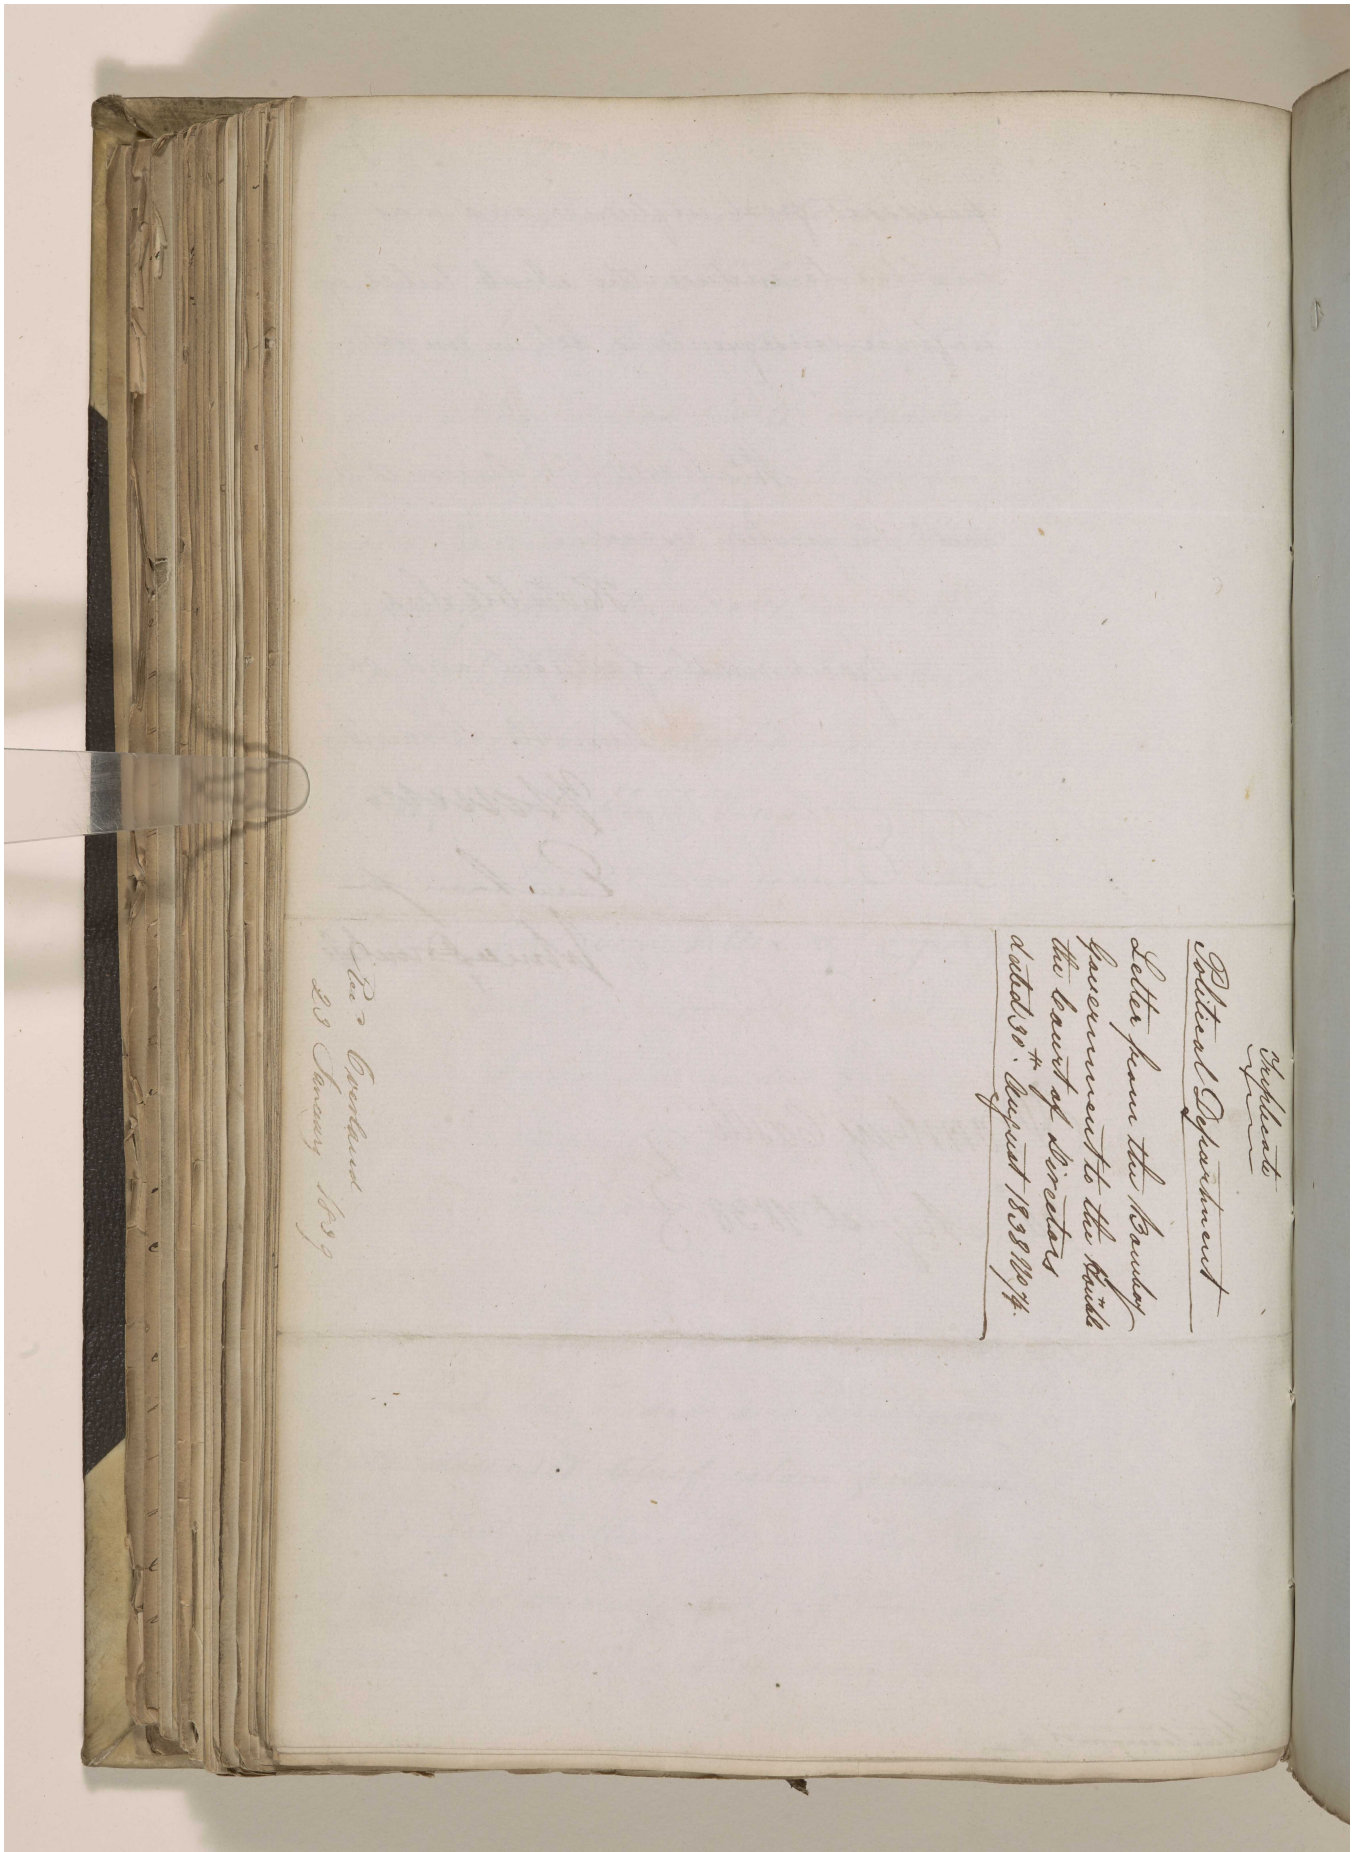 Triplicate
Political Department
Letter from the Bombay
Government to the Honble
the Court of Directors
dated 30th. August 1838 No 74.
Rec Overland
23 January 1839